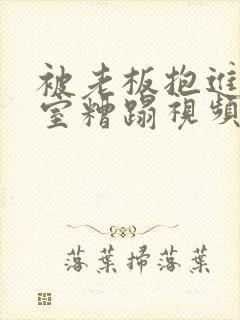 被老板抱進
室糟蹋視頻
落葉掃落葉